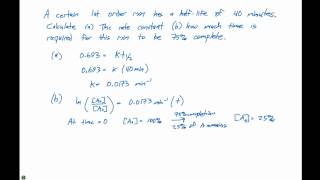 A certain 1st order rxn has a half-life of 40 minutes.
Calculate (a) The rate constant (b) how much time is
required for this rxn to be 75% complete.
(a) 0.693 = K t½
0.693 = K (40 min)
K = 0.0173 min⁻¹
(b) ln [A₀]/[At] = 0.0173 min⁻¹ (t)
At time = 0 [A₀] = 100% 75% completion → 25% of A remains = 25%